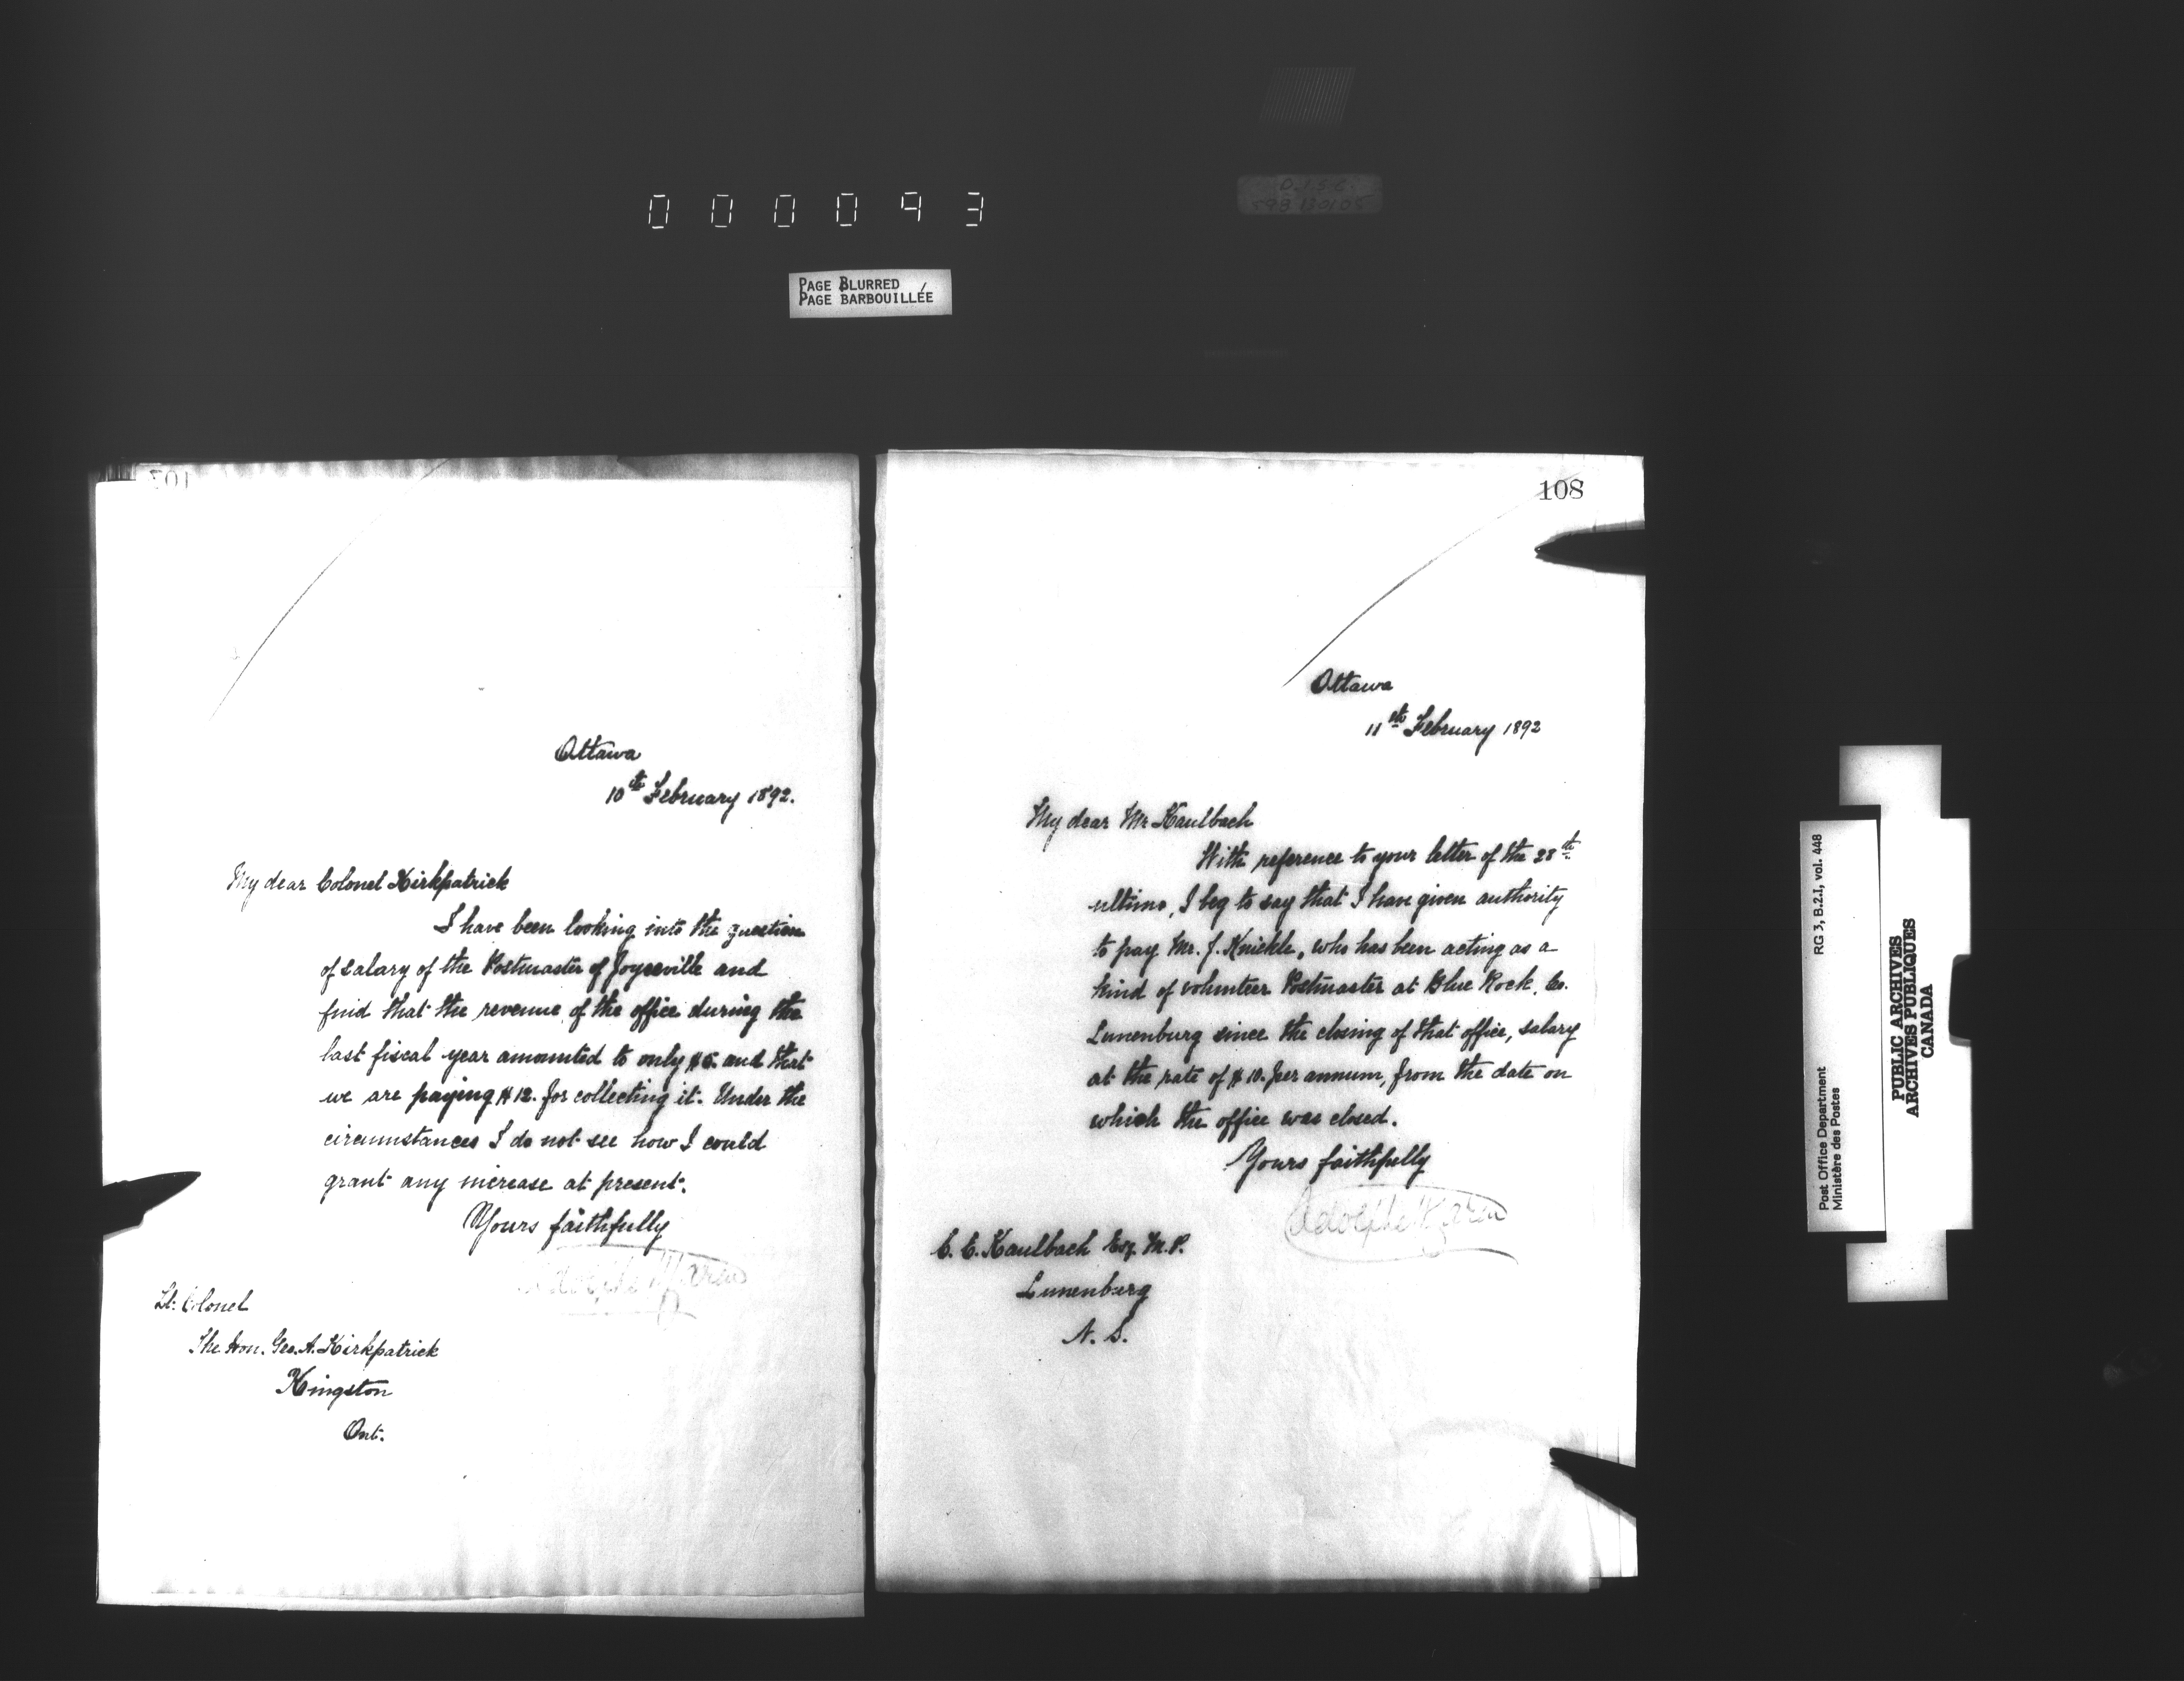 000093
PAGE BLURRED
PAGE BARBOUILLÉE
107
Ottawa
10th February 1892.
My dear Colonel Kirkpatrick
I have been looking into the question
of salary of the Postmaster of Joyceville and
find that the revenue of the office during the
last fiscal year amounted to only $6. and that
we are paying $12. for collecting it. Under the
circumstances I do not see how I could
grant any increase at present.
Yours faithfully
Adolphe P. Caron
Lt. Colonel
The Hon. Geo. A. Kirkpatrick
Kingston
Ont.
108
Ottawa
11th February 1892
My dear Mr Kaulbach
With reference to your letter of the 28th
ultimo, I beg to say that I have given authority
to pay Mr. J. Knickle, who has been acting as a
kind of volunteer Postmaster at Blue Rock, Co.
Lunenburg since the closing of that office, salary
at the rate of $10. per annum, from the date on
which the office was closed.
Yours faithfully
Adolphe P. Caron
C. E. Kaulbach Esq. M.P.
Lunenburg
N. S.
Post Office Department
Ministère des Postes
RG 3, B.2.I, vol. 448
PUBLIC ARCHIVES
ARCHIVES PUBLIQUES
CANADA